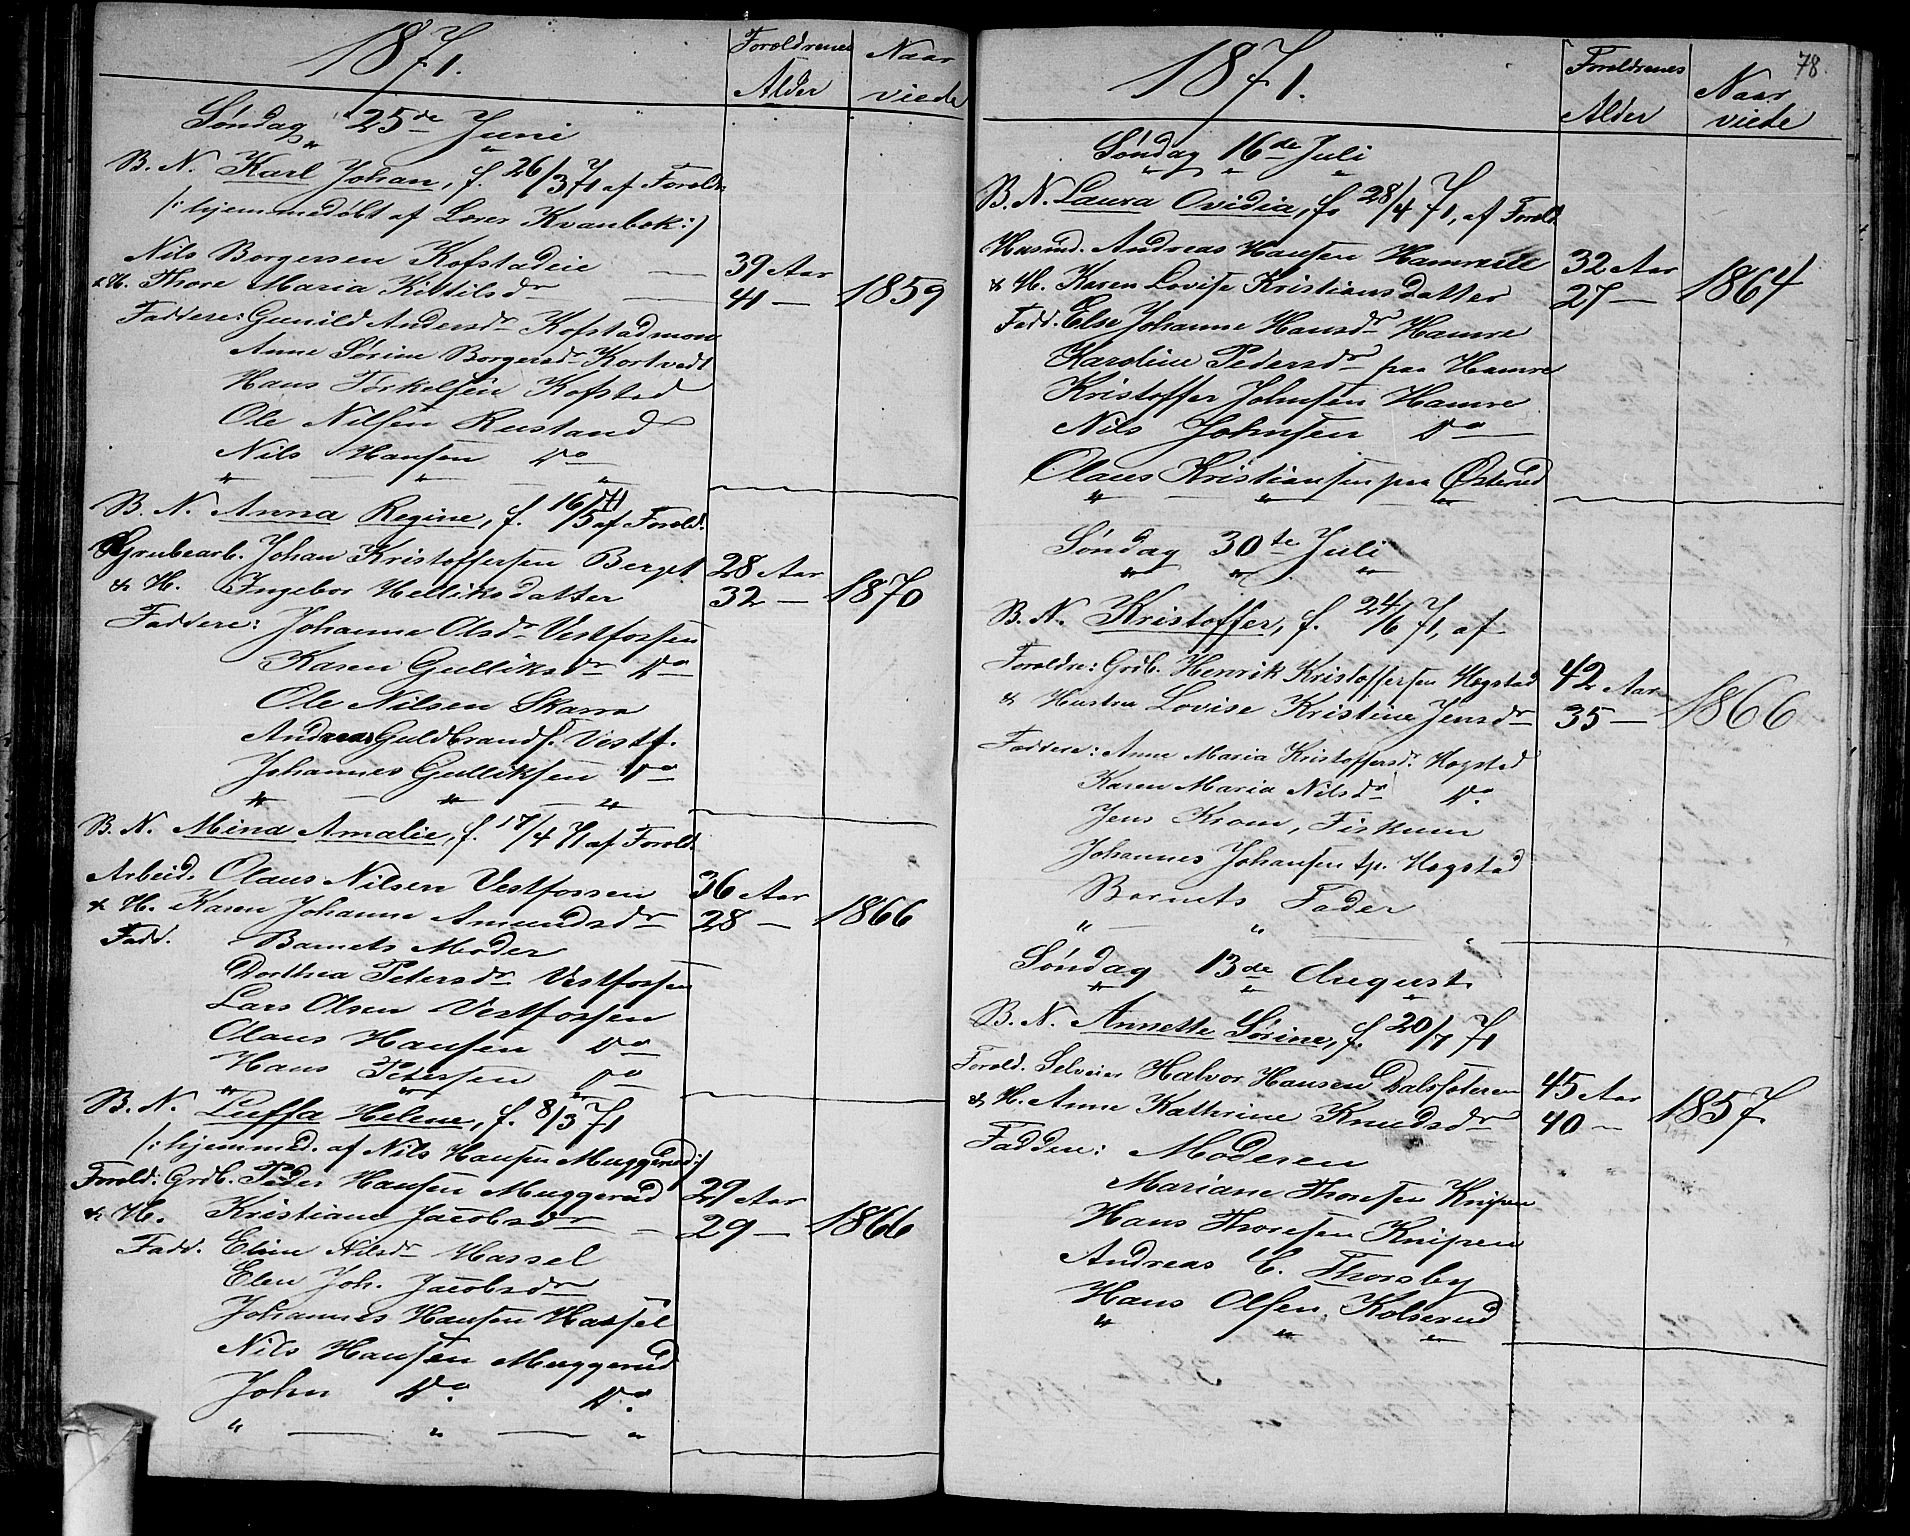 1871.
Forældrenes Alder
Naar viede
Søndag 25de Juni
B. N. Karl Johan, f. 26/3 71 af Foræld.
/: hjemmedøbt af Lærer Kvanbek :/
Nils Borgersen Kofstadeie — 39 Aar
& H. Thore Maria Kittilsdr — 41 — 1859
Faddere: Gunild Andersdr Kofstadmoen
Anne Sørine Borgersdr Kortvedt
Hans Torkelsen Kofstad
Ole Nilsen Rustand
Nils Hansen Do
" — " — "
B. N. Anna Regine, f. 16/5 71 af Foræld.
Grubearb. Johan Kristoffersen Berget 28 Aar
& H. Ingebor Helliksdatter 32 — 1870
Faddere: Johanne Olsdr Vestfossen
Karen Gulliksdr Do
Ole Nilsen Skarra
Andreas Guldbrands. Vestf.
Johannes Gulliksen Do
" — " — "
B. N. Mina Amalie, f. 17/4 71 af Foræld.
Arbeid. Olaus Nilsen Vestfossen 36 Aar
& H. Karen Johanne Amundsdr 28 — 1866
Fadd. Barnets Moder
Dorthea Petersdr Vestfossen
Lars Olsen Vestfossen
Olaus Hansen Do
Hans Petersen Do
" " "
B. N. Luffa Helene, f. 8/3 71
/: hjemmed. af Nils Hansen Muggerud :/
Foræld: Grdb. Peder Hansen Muggerud 29 Aar
& H. Kristiane Jacobsdr — 29 — 1866
Fadd. Eline Nilsdr Hassel
Elen Joh. Jacobsdr
Johannes Hansen Hassel
Nils Hansen Muggerud
John Do. Do.
" — " — "
78.
1871.
Forældrenes Alder
Naar viede
Søndag 16de Juli
" " "
B. N. Laura Ovidia, f. 28/4 71, af Foræld.
Husmd. Andreas Hansen 32 Aar
& H. Karen Lovise Kristiansdatter 27 — 1864
Fadd. Else Johanne Hansdr Hamre
Karoline Pedersdr paa Hamre
Kristoffer Johnsen Hamre
Nils Johnsen Do —
Olaus Kristiansen paa Østerud
" — " — "
Søndag 30te Juli
" " "
B. N. Kristoffer, f. 24/6 71, af
Forældre: Grdb. Henrik Kristoffersen Hogstad 42 Aar
& Hustru Lovise Kristine Jensdr 35 — 1866
Faddere: Anne Maria Kristoffersdr. Hogstad
Karen Maria Nilsdr Do.
Jens Krom, Fiskum
Johannes Johansen sp. Hogstad
Barnets Fader
" — " — "
Søndag 13de August.
" " "
B. N. Annette Sørine, f. 20/7 71
Foræld. Selveier Halvor Hansen Dalsseteren 45 Aar
& H. Anne Kathrine Knudsdr 40 — 1857.
Faddere: Moderen
Mariane Thoresen Knipen
Hans Thoresen Knipen
Andreas C. Thorsby
Hans Olsen Kolserud
" " "